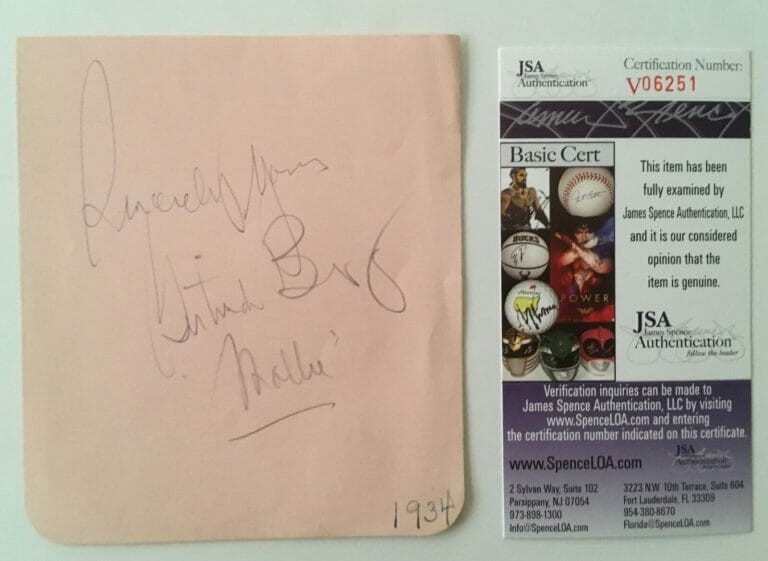 Sincerely Yours
Gertrude Berg
"Mollie"
1934
JSA
James Spence
Authentication
Certification Number:
V06251
James Spence
Basic Cert
BUCKS
POWER
This item has been
fully examined by
James Spence Authentication, LLC
and it is our considered
opinion that the
item is genuine.
JSA
James Spence
Authentication
follow the leader
Verification inquiries can be made to
James Spence Authentication, LLC by visiting
www.SpenceLOA.com and entering
the certification number indicated on this certificate.
JSA
Authentication
www.SpenceLOA.com
2 Sylvan Way, Suite 102
Parsippany, NJ 07054
973-898-1300
Info@SpenceLOA.com
3223 N.W. 10th Terrace, Suite 604
Fort Lauderdale, FL 33309
954-380-8670
Florida@SpenceLOA.com